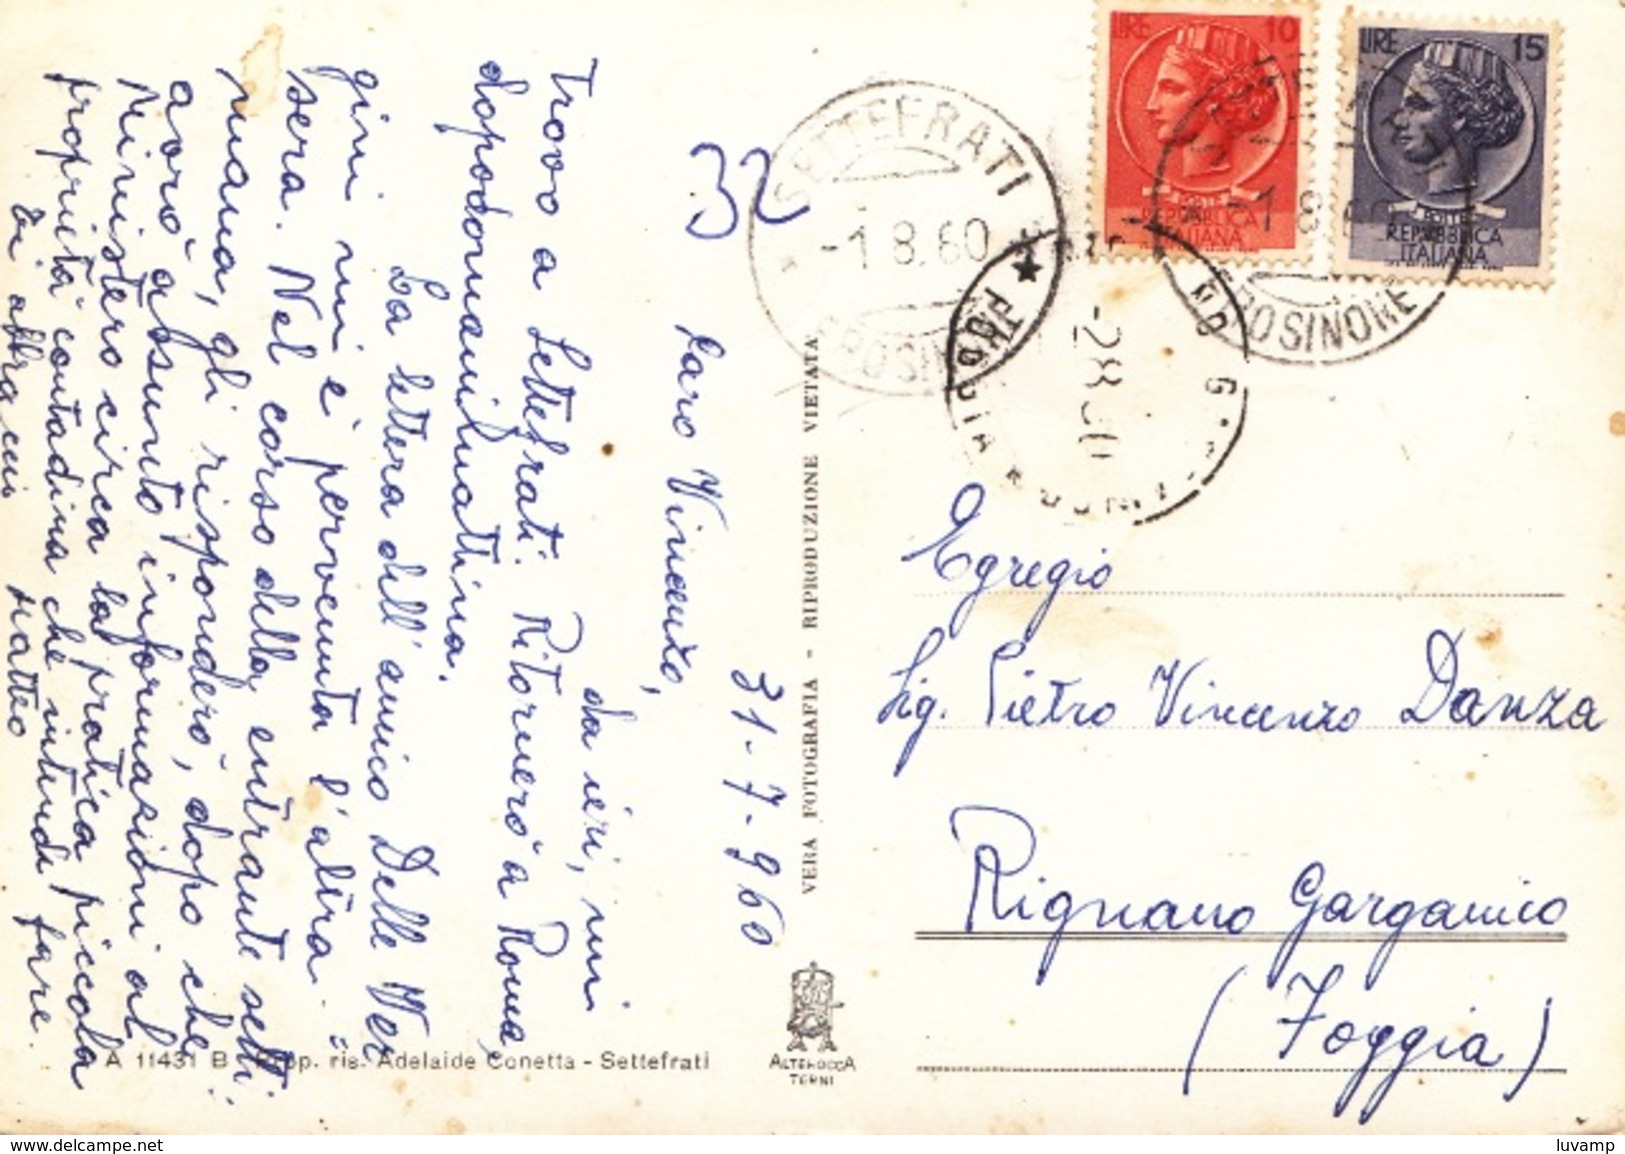 31-7-960
Caro Vincenzo,
da ieri, mi
trovo a Settefrati. Ritornerò a Roma,
dopodomani mattina.
La lettera dell'amico Delle Ver
gini mi è pervenuta l'altra
sera. Nel corso della entrante setti
mana, gli risponderò, dopo che
avrò assunto informazioni al
Ministero circa la pratica piccola
proprietà contadina che intendi fare.
Ti abbraccio
Matteo
32
SETTEFRATI
-1.8.60
FROSINONE
LIRE 10
POSTE
REPVBBLICA
ITALIANA
LIRE 15
POSTE
REPVBBLICA
ITALIANA
-1.8.60
FROSINONE
VERA FOTOGRAFIA - RIPRODUZIONE VIETATA
Egregio
Sig. Pietro Vincenzo Danza
Rignano Garganico
(Foggia)
A 11431 B Prop. ris. Adelaide Conetta - Settefrati
ALTEROCCA
TERNI
luvamp
www.delcampe.net